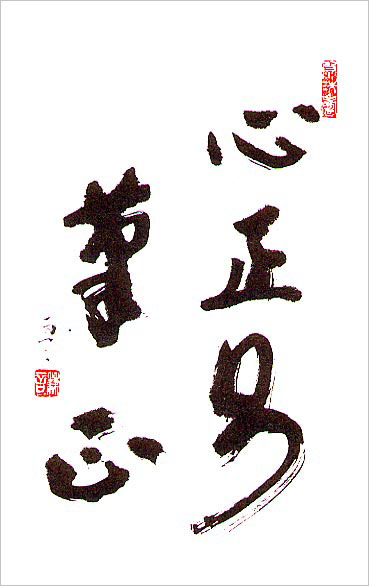 心正則
筆正